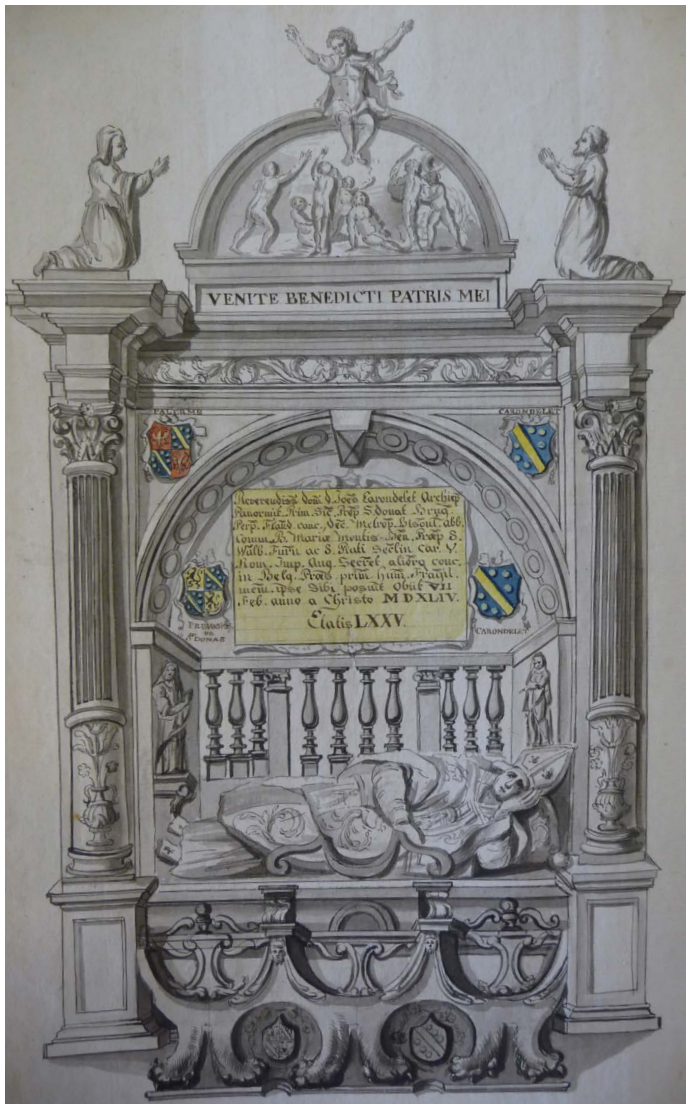 VENITE BENEDICTI PATRIS MEI
PALERME
CARONDELET
Reverendiss. Dom. D. Joes Carondelet Archiep
Panormit. Prim. Sic. Præp S. Donat. Brug
Perp. Fland. canc. Dec. Metrop. Bisont. abb.
Comm. B. Mariæ Montis Ben. Præp S.
Walb. Furn. ac S. Piati Seclin Car. V.
Rom. Imp. Aug. Secret. alioru conc.
in Belg. Præs prim. hum. Fragil.
mem. ipse sibi posuit Obiit VII
Feb. anno a Christo MDXLIV.
Etatis LXXV.
DE
St DONAS
CARONDELET